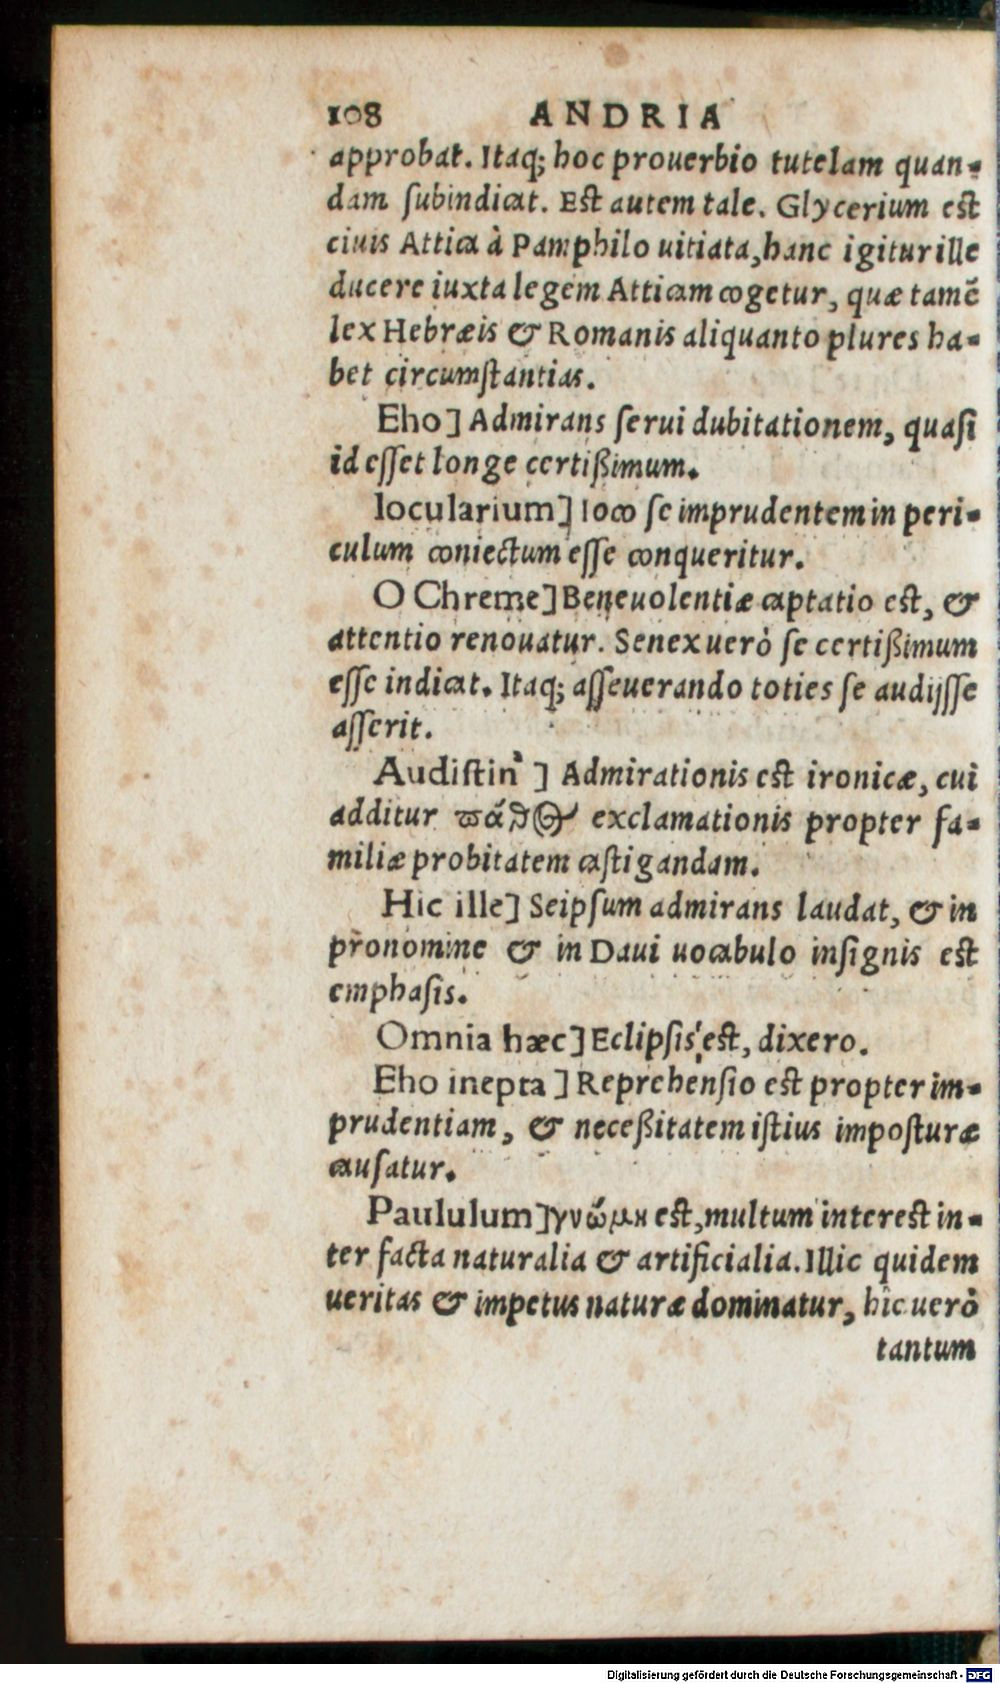 108 ANDRIA
approbat. Itaq; hoc prouerbio tutelam quan-
dam ſubindicat. Est autem tale. Glycerium est
ciuis Attica à Pamphilo uitiata, hanc igitur ille
ducere iuxta legem Atticam cogetur, quæ tamē
lex Hebræis & Romanis aliquanto plures ha-
bet circumſtantias.
Eho] Admirans ſerui dubitationem, quaſi
id eſſet longe certißimum.
Iocularium] Ioco ſe imprudentem in peri-
culum coniectum eſſe conqueritur.
O Chreme] Beneuolentiæ captatio est, &
attentio renouatur. Senex uerò ſe certißimum
eſſe indicat. Itaq; aſſeuerando toties ſe audijſſe
aſſerit.
Audiſtin'] Admirationis est ironicæ, cui
additur πάθος exclamationis propter fa-
miliæ probitatem caſtigandam.
Hic ille] Seipſum admirans laudat, & in
pronomine & in Daui uocabulo inſignis est
emphaſis.
Omnia hæc] Eclipſis est, dixero.
Eho inepta] Reprehenſio est propter im-
prudentiam, & neceßitatem iſtius impoſturæ
cauſatur.
Paululum] γνώμη est, multum interest in-
ter facta naturalia & artificialia. Illic quidem
ueritas & impetus naturæ dominatur, hic uerò
tantum
Digitalisierung gefördert durch die Deutsche Forschungsgemeinschaft - DFG